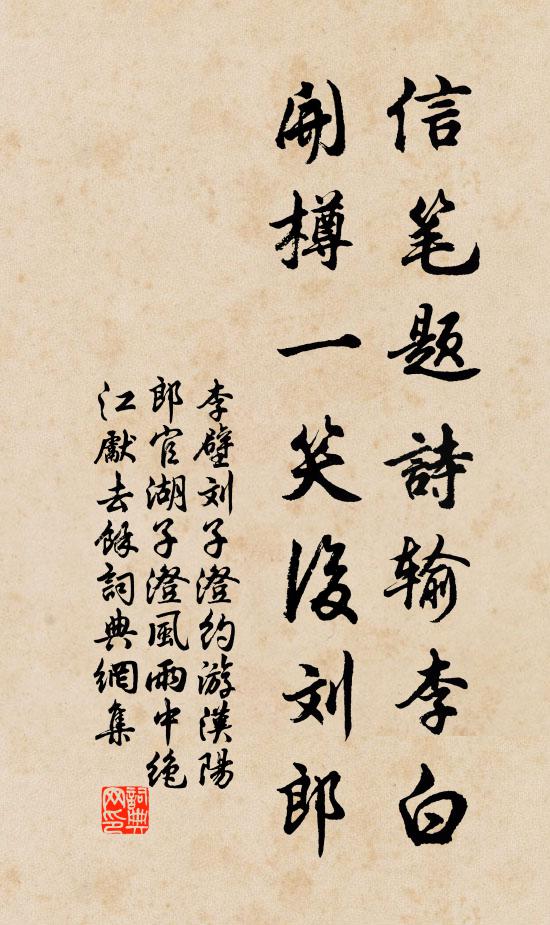 信笔题詩输李白
開樽一笑後刘郎
李壁刘子澄约游漢陽
郎官湖子澄風雨中绝
江獻去餘詞典網集
詞典网印